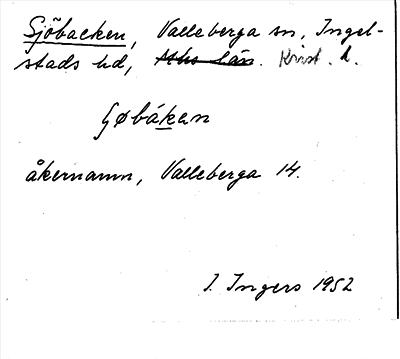 Sjöbacken, Valleberga sn, Ingel-
stads hd, Mhs län. Krist. l.
ʃøbákan
åkernamn, Valleberga 14.
I. Ingers 1952